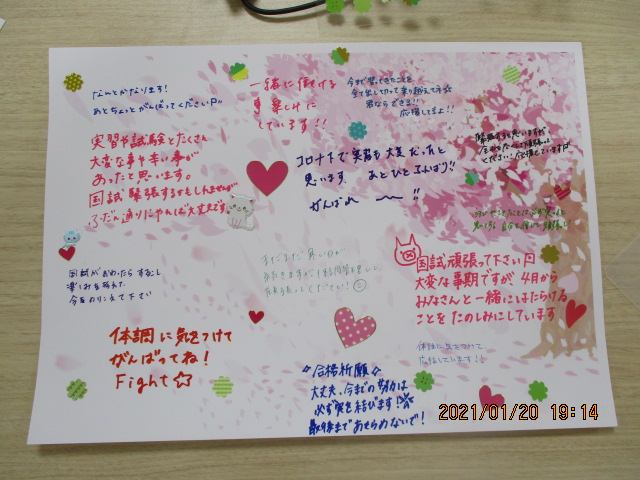 なんとかなります!
あとちょっとがんばってください
一緒に働ける
事楽しみに
しています!!
今まで習ってきたことを
全て出し切って乗り越えてネ☆
君ならできる!!
応援してるよ!!
実習や試験とたくさん
大変な事や辛い事が
あったと思います。
国試緊張するかもしれませんが
ふだん通りにやれば大丈夫です
コロナ下で実習も大変だったと
思います。 あとひとふんばり!!
がんばれ ー !!
国試がおわったら
楽しみを
今をのりこえて下さい
まだまだ寒い日が
続きますが体調管理
頑張ってください!
国試頑張って下さい
大変な時期ですが、4月から
みなさんと一緒にはたらける
ことをたのしみにしています
体調に気をつけて
応援しています!!
体調に気をつけて
がんばってね!
Fight☆
合格祈願
大丈夫、今までの努力は
必ず実を結びます!
最後まであきらめないで!
2021/01/20 19:14